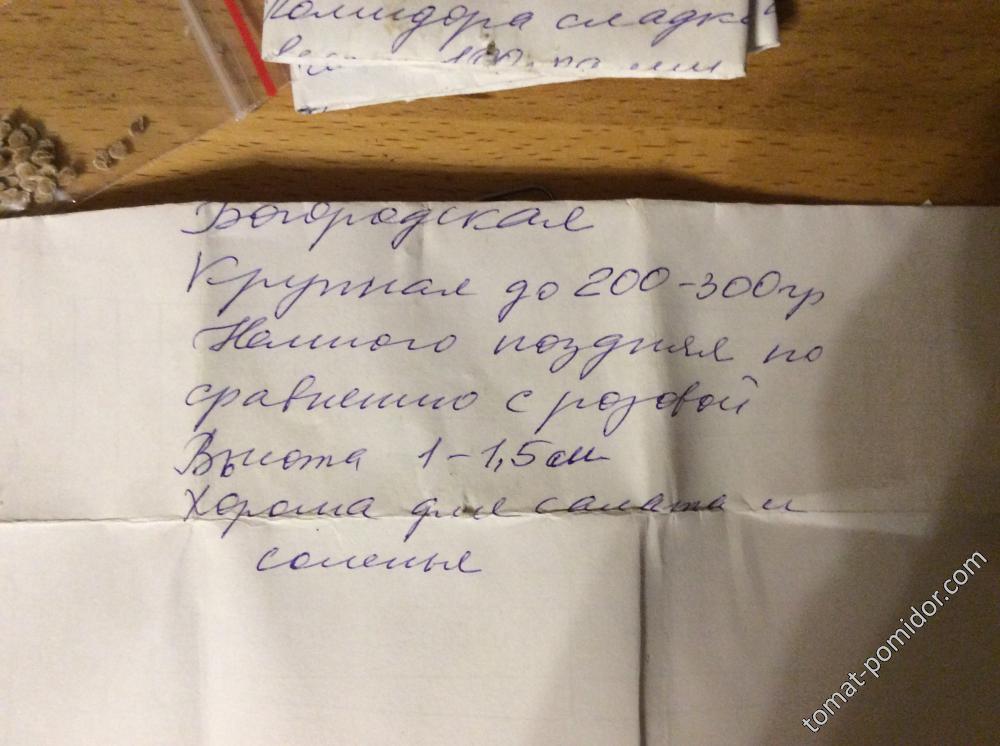 Помидора сладк
100
Богородская
Крупная до 200-300гр
Немного поздняя по
сравнению с розовой
Высота 1-1,5см
Хороша для салата и
соленья
tomat-pomidor.com